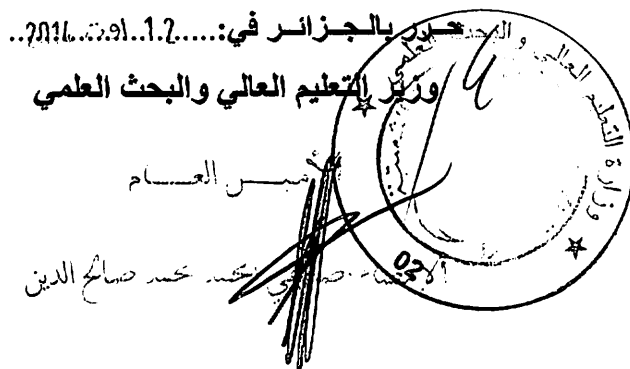 حرر بالجزائر في:.....12..أوت..2014..
وزير التعليم العالي والبحث العلمي
الأمين العام
محمد صالح الدين
وزارة التعليم العالي و البحث العلمي
02